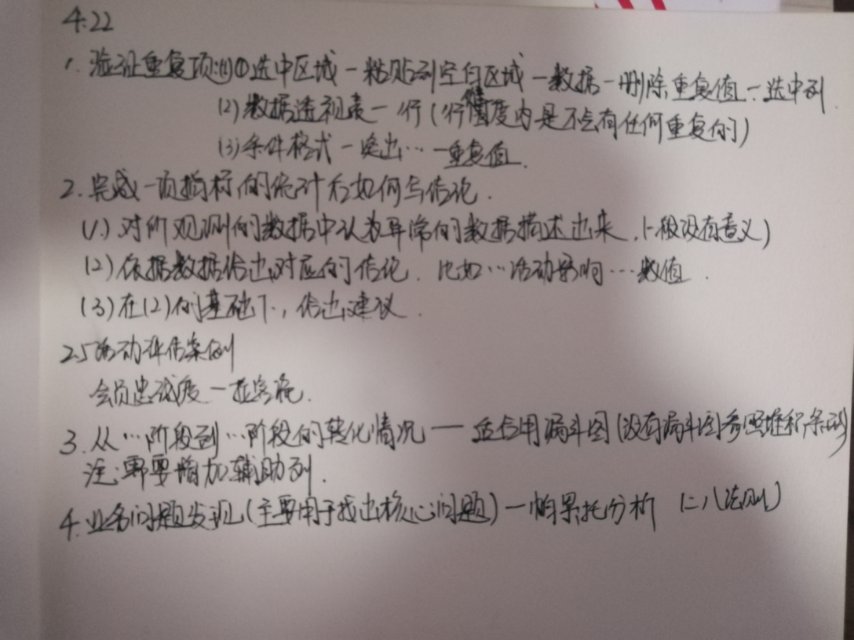 4.22
1. 验证重复项:(1)①选中区域—粘贴到空白区域—数据—删除重复值—选中列
(2)数据透视表—行(行维度内是不会有任何重复的)
(3)条件格式—突出…—重复值.
2. 完成一项指标的统计后如何写结论.
(1)对所观测的数据中认为异常的数据描述出来.(一般没有意义)
(2)依据数据给出对应的结论. 比如…活动影响…数值.
(3)在(2)的基础下,给出建议.
2.5活动评估案例
会员忠诚度—
3. 从…阶段到…阶段的转化情况——适合用漏斗图(没有漏斗图参照堆积条形)
注:需要增加辅助列.
4. 业务问题发现(主要用于找出核心问题)—帕累托分析 (二八法则)